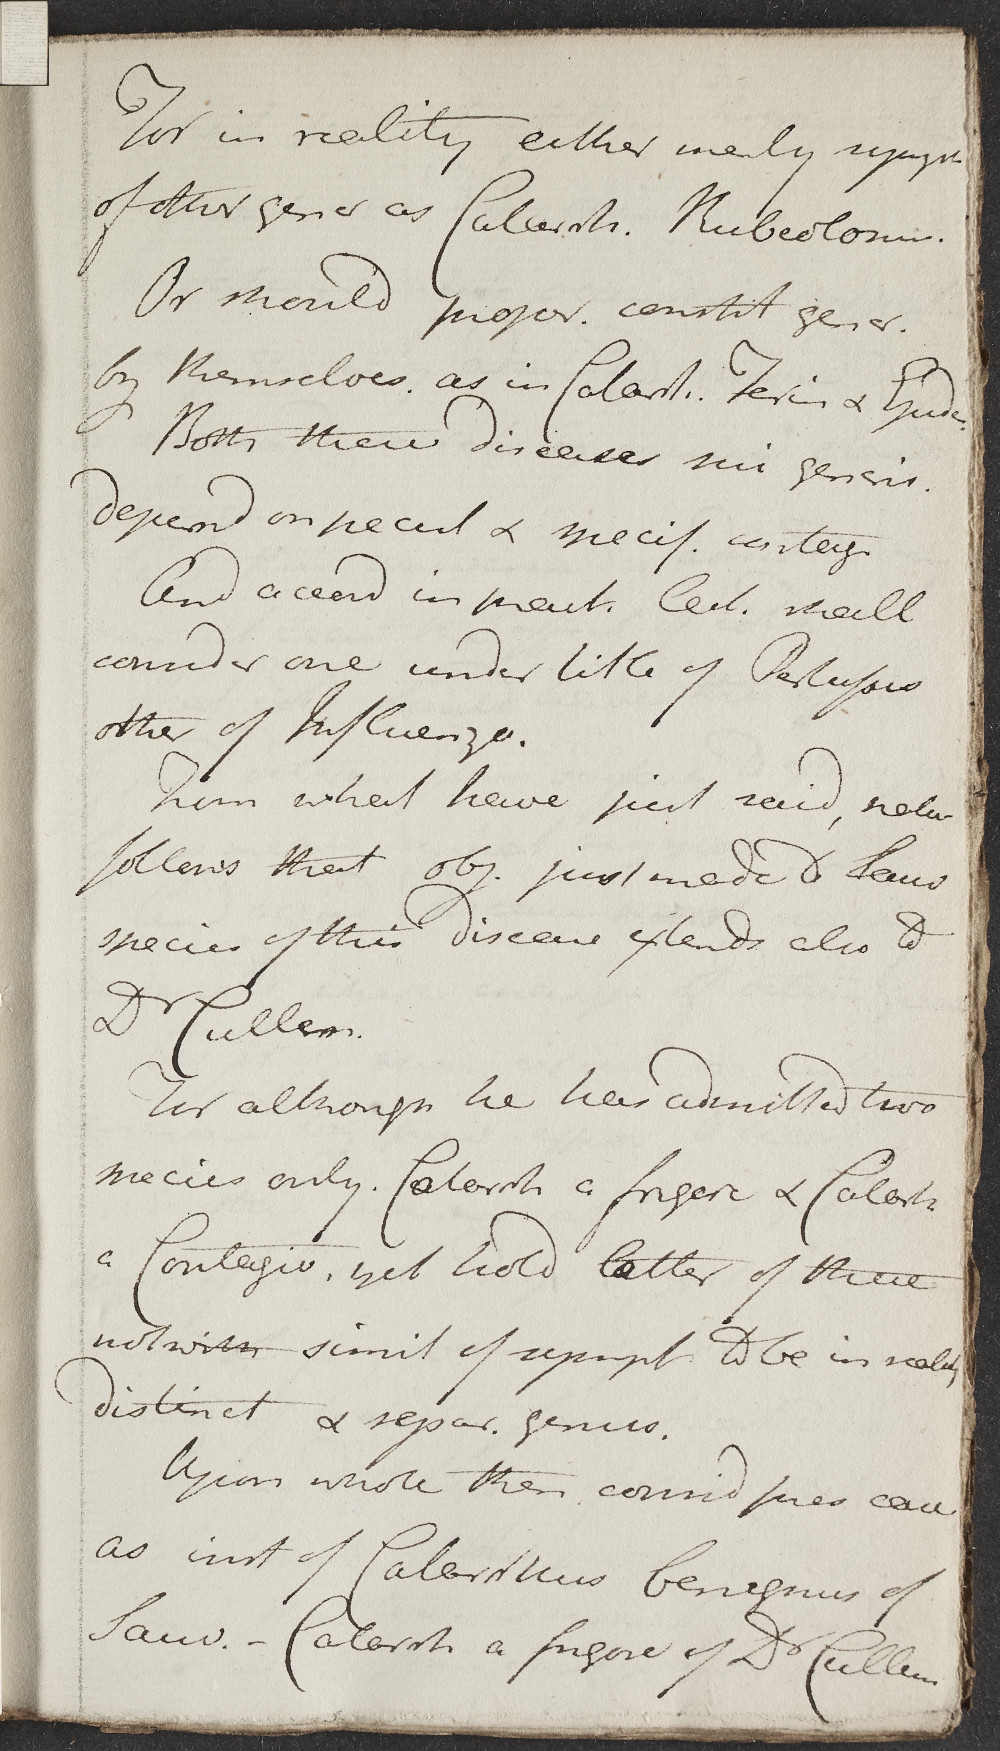 For in reality either merely sympt
of other gener as Catarrh. Rubeolosus.
Or should proper. constit gener.
by themselves. as in Catarrh. Ferin & Epidem.
Both these diseases sui generis.
depend on pecul & specif. contag
And accord in pract. Lect. shall
consider one under title of Pertussis
other of Influenza.
From what have just said, natur
follows that obj. just made to Sauv
species of this disease extends also to
Dr Cullen.
For although he has admitted two
species only. Catarrh a frigore & Catarrh
a Contagio, yet hold latter of these
notwith simil of sympt to be in reality
distinct & separ. genus.
Upon whole then consid pres case
as inst of Catarrhus benignus of
Sauv. - Catarrh a frigore of Dr Cullen